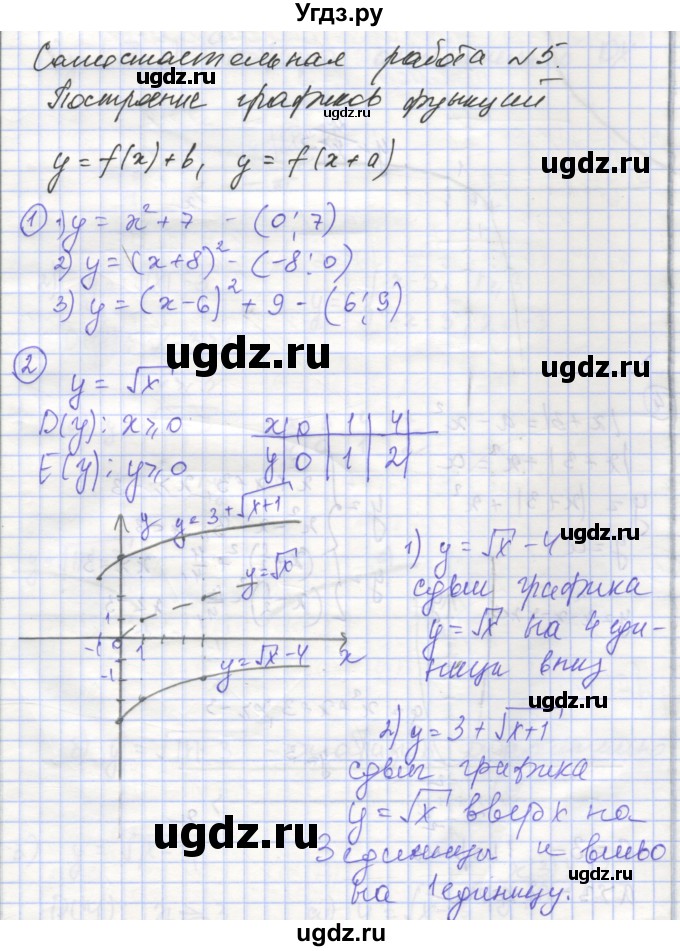 Угдз.ру
Самостоятельная работа №5.
Построение графиков функций
y = f(x) + b, y = f(x + a)
1 1) y = x² + 7 - (0; 7)
2) y = (x + 8)² - (-8; 0)
3) y = (x - 6)² + 9 - (6; 9)
2
y = √x
D(y): x ⩾ 0
E(y): y ⩾ 0
x | 0 | 1 | 4
y | 0 | 1 | 2
y
y = 3 + √x+1
y = √x
1
-1 0 1
x
-1
y = √x - 4
1) y = √x - 4
сдвиг графика
y = √x на 4 еди-
ницы вниз
2) y = 3 + √x+1
сдвиг графика
y = √x вверх на
3 единицы и влево
на 1 единицу.
ugdz.ru
ugdz.ru
ugdz.ru
ugdz.ru
ugdz.ru
ugdz.ru
ugdz.ru
ugdz.ru
ugdz.ru
ugdz.ru
ugdz.ru
ugdz.ru